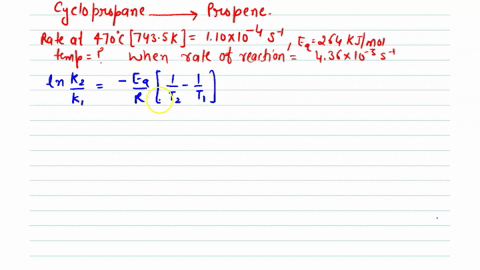 Cyclopropane ⟶ Propene.
Rate at 470°C [743.5K] = 1.10×10⁻⁴ s⁻¹, Ea = 264 KJ/mol
temp = ? when rate of reaction = 4.36×10⁻³ s⁻¹
ln K₂/K₁ = -Ea/R [1/T₂ - 1/T₁]